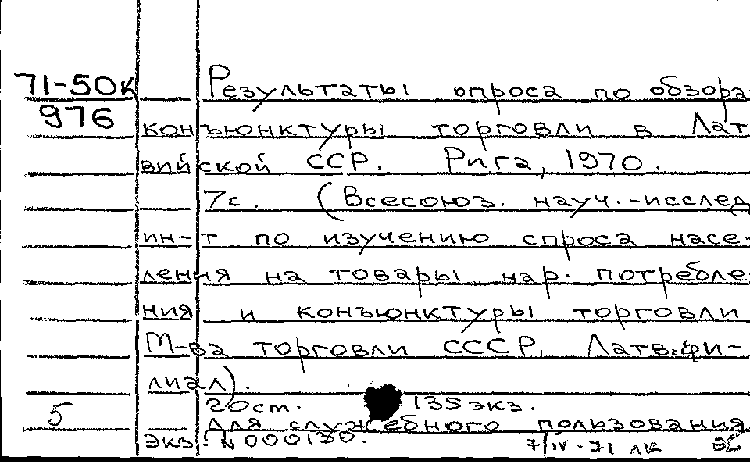 71-50к
976
Результаты опроса по обзора
конъюнктуры торговли в Лат
вийской ССР. Рига, 1970.
7с. (Всесоюз. науч.-исслед
ин-т по изучению спроса насе-
ления на товары нар. потребле
ния и конъюнктуры торговли
М-ва торговли СССР. Латв.фи-
лиал).
20см. 135 экз.
5
Для служебного пользования
экз. N 000130.
7/IV-71 лк